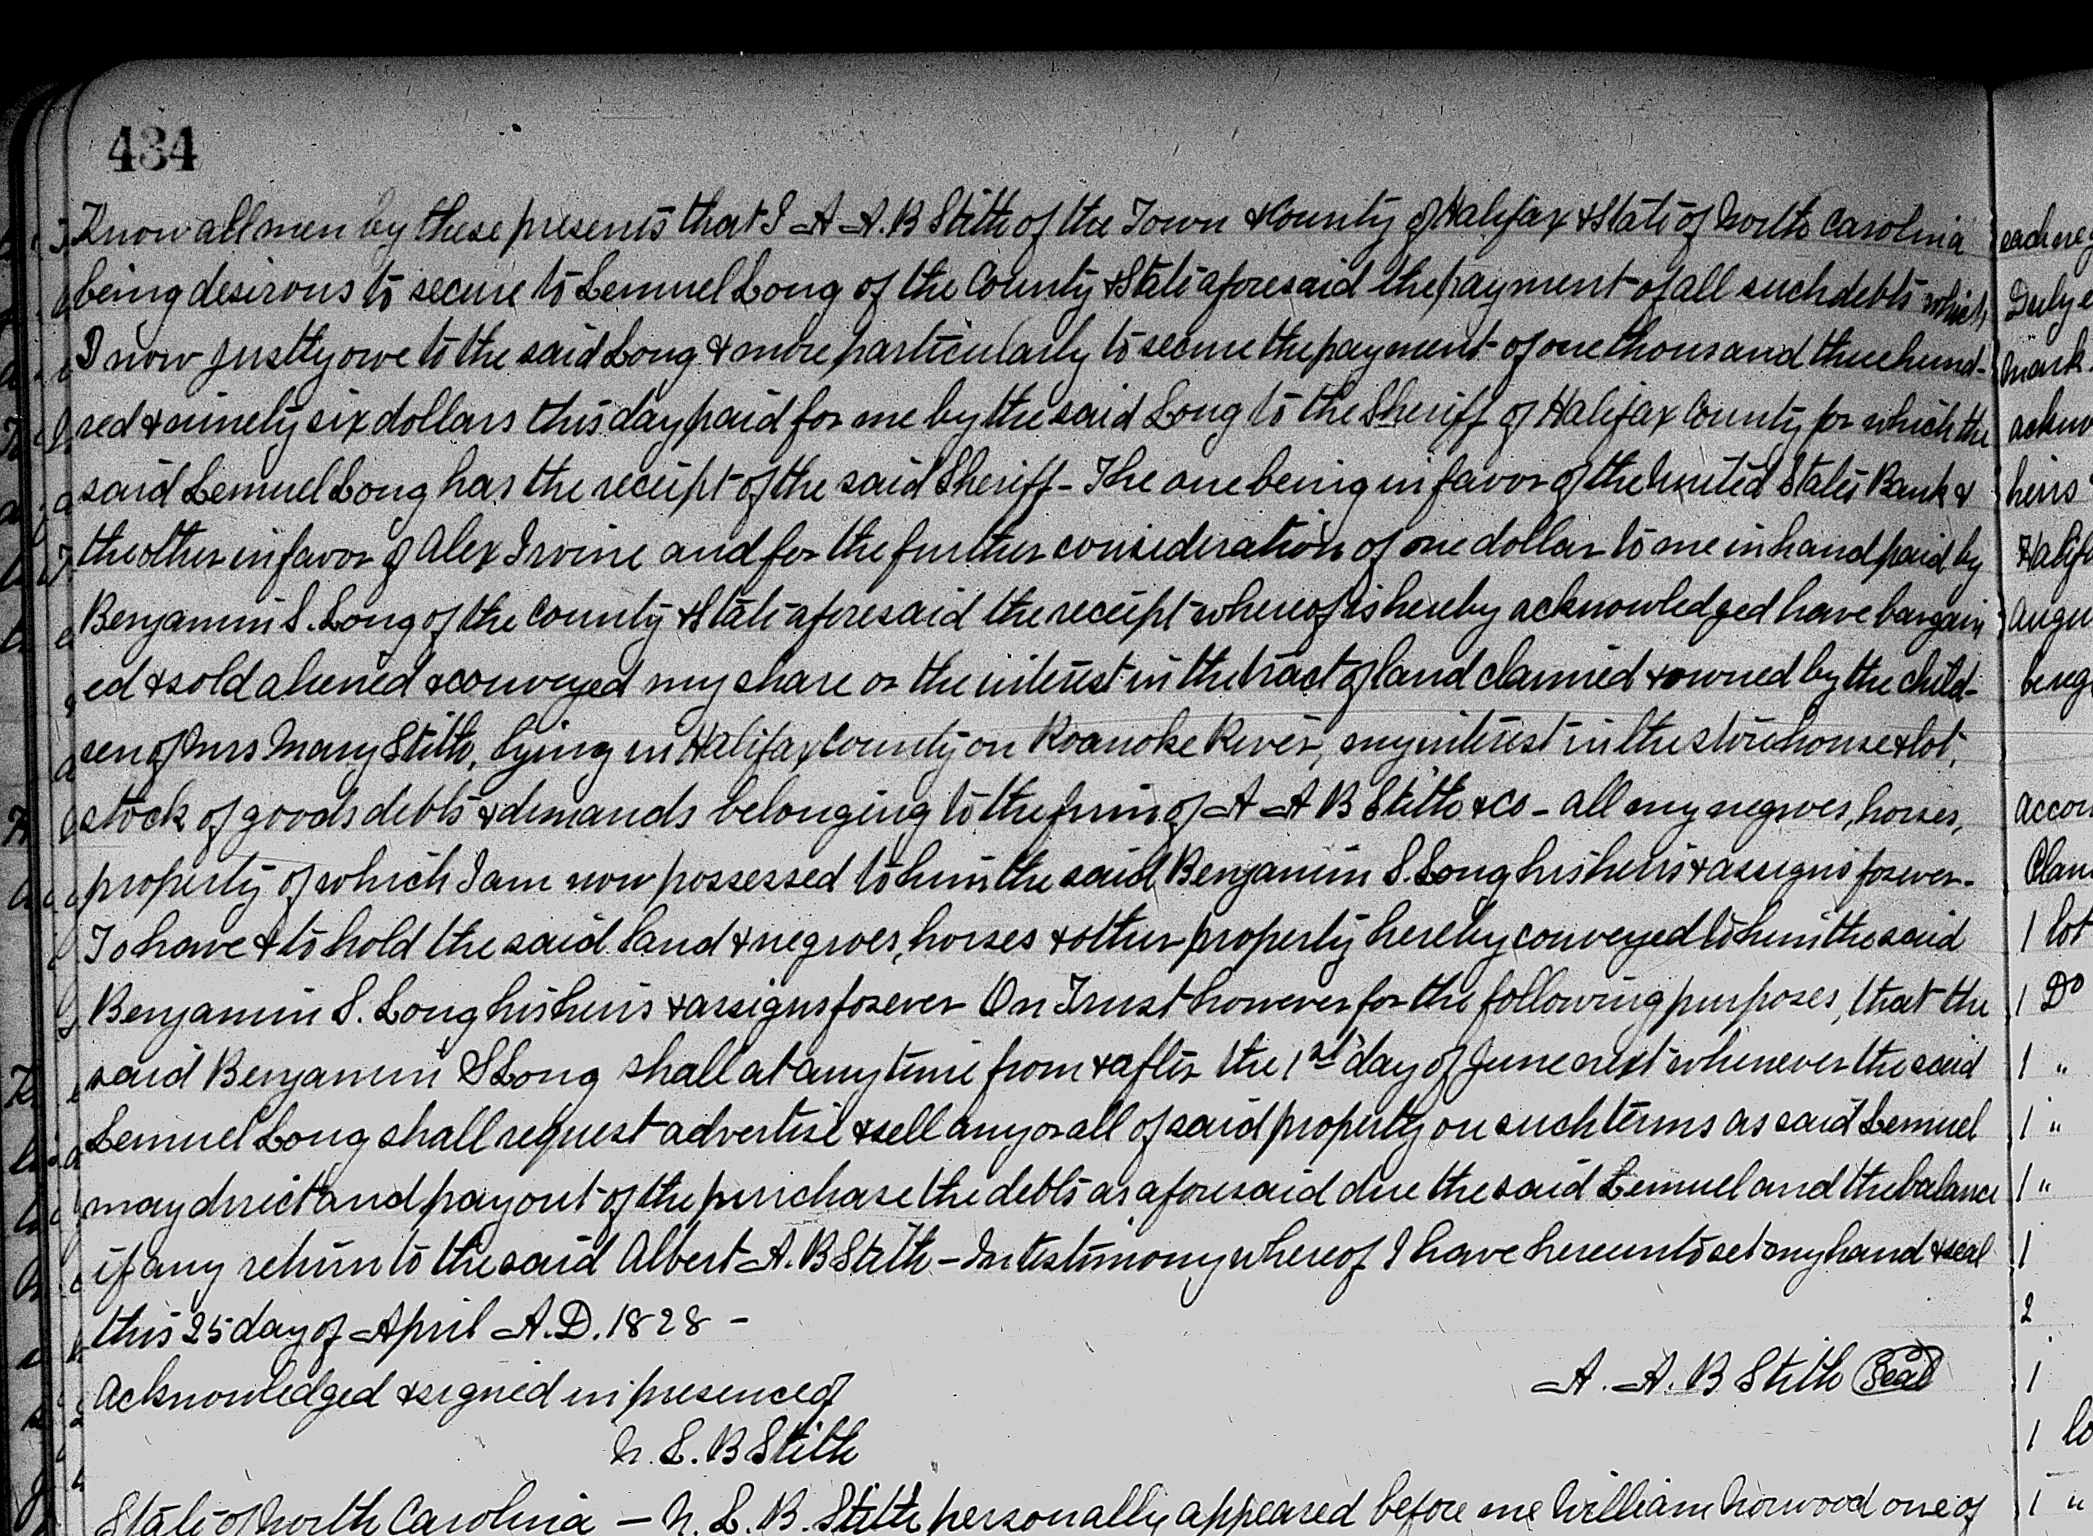 434
Know all men by these presents that I A A. B Stith of the Town & County of Halifax & State of North Carolina
being desirous to secure to Lemuel Long of the County & State aforesaid the payment of all such debts which
I now justly owe to the said Long & more particularly to secure the payment of one thousand three hund-
red & ninety six dollars this day paid for me by the said Long to the Sheriff of Halifax County for which the
said Lemuel Long has the receipt of the said Sheriff - The one being in favor of the United States Bank &
the other in favor of Alex Irvine and for the further consideration of one dollar to me in hand paid by
Benjamin S. Long of the County & State aforesaid the receipt whereof is hereby acknowledged have bargain
ed & sold aliened & conveyed my share or the interest in the tract of land claimed & owned by the child-
ren of Mrs Mary Stith, lying in Halifax County on Roanoke River, my interest in the storehouse & lot,
stock of goods debts & demands belonging to the firm of A A B Stith & Co - all my negroes, horses,
property of which I am now possessed to him the said Benjamin S. Long his heirs & assigns forever -
To have & to hold the said land & negroes, horses & other property hereby conveyed to him the said
Benjamin S. Long his heirs & assigns forever On Trust however for the following purposes, that the
said Benjamin S Long shall at any time from & after the 1st day of June next whenever the said
Lemuel Long shall request advertise & sell any or all of said property on such terms as said Lemuel
may direct and pay out of the purchase the debts as aforesaid due the said Lemuel and the balance
if any return to the said Albert A. B Stith - In testimony whereof I have hereunto set my hand & seal
this 25 day of April A. D. 1828 -
A. A. B Stith Seal
Acknowledged & signed in presence of
N. L. B Stith
State of North Carolina - N. L. B. Stith personally appeared before me William Norwood one of